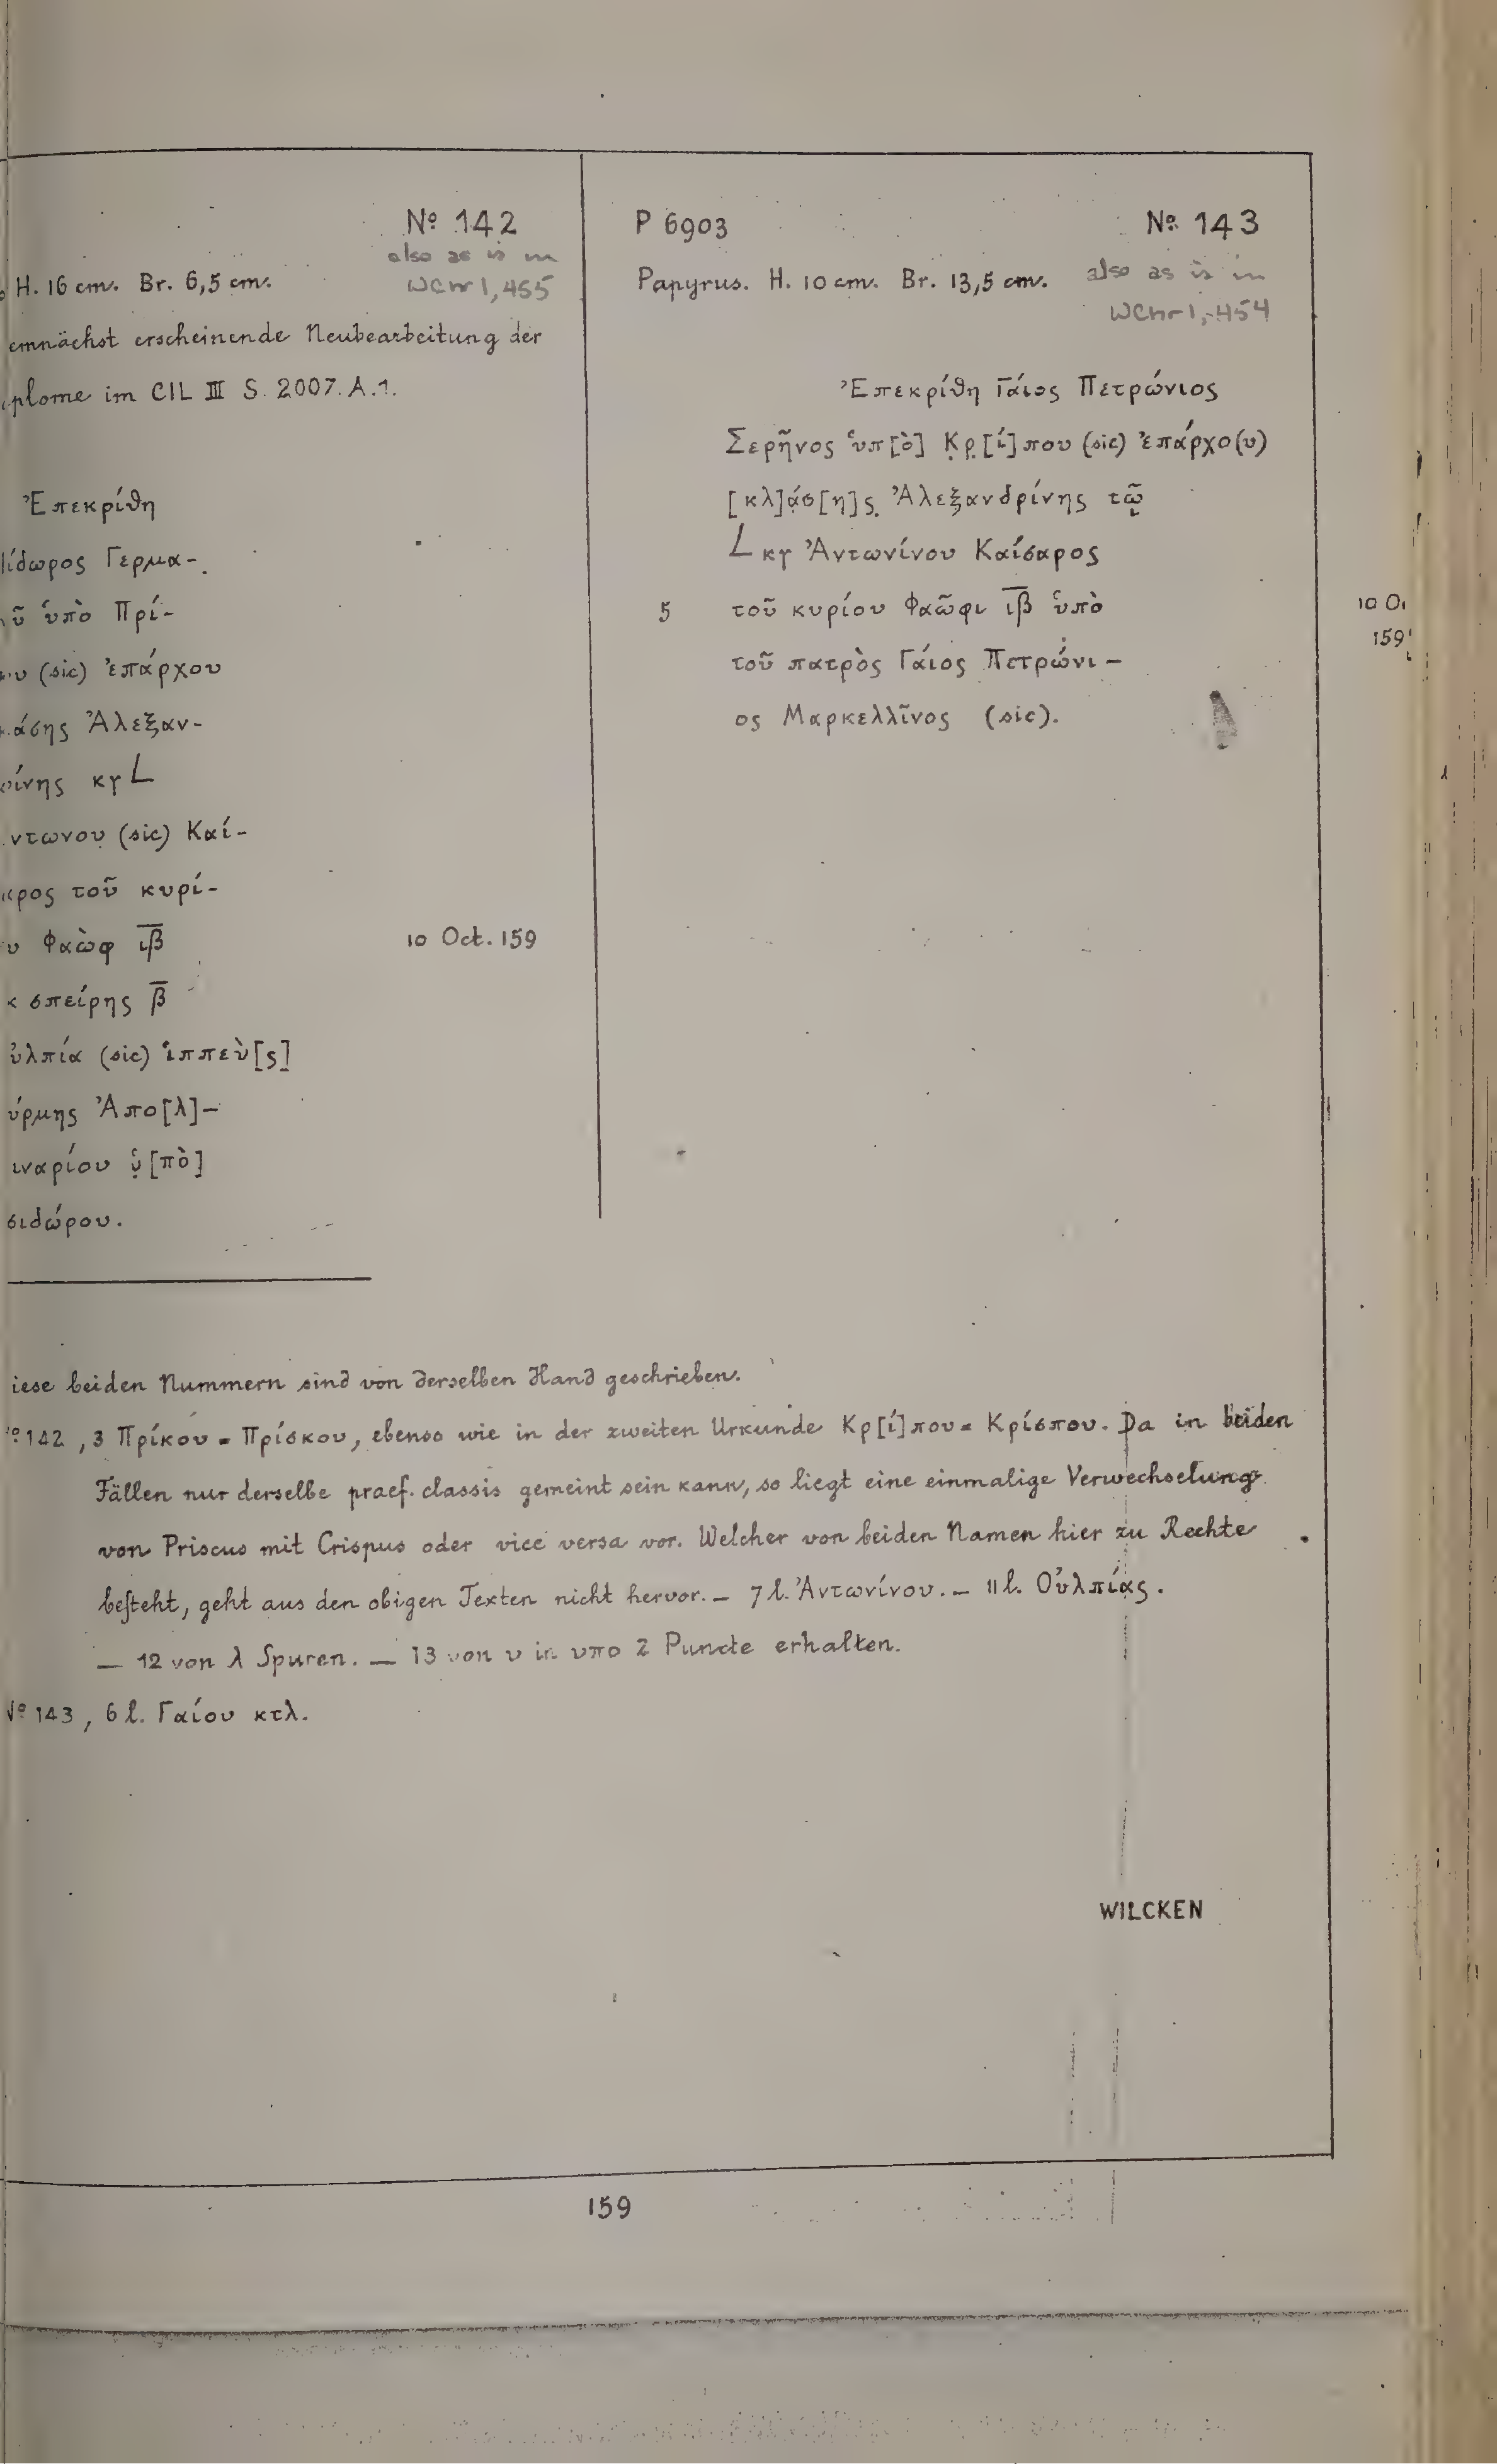 Nº 142
also as is in
WChr 1, 455
H. 16 cm. Br. 6,5 cm.
emnächst erscheinende Neubearbeitung der
plome im CIL III S. 2007. A.1.
Ἐπεκρίθη
ίδωρος Γερμα-
ῦ ὑπὸ Πρί-
υ (sic) ἐπάρχου
άσης Ἀλεξαν-
ρίνης κγ L
ντωνου (sic) Καί-
αρος τοῦ κυρί-
υ Φαὼφ ι̅β̅
10 Oct. 159
κ σπείρης β̅
ὐλπία (sic) ἱππεὺ[ς]
ύρμης Ἀπο[λ]-
ιναρίου ὑ̣[πὸ]
σιδώρου.
P 6903
Nº 143
Papyrus. H. 10 cm. Br. 13,5 cm.
also as is in
WChr 1, 454
Ἐπεκρίθη Γάιος Πετρώνιος
Σερῆνος ὑπ[ὸ] Κ̣ρ̣[ί]που (sic) ἐπάρχο(υ)
[κλ]ά̣σ[η]ς̣ Ἀλεξανδρίνης τῷ
L κγ Ἀντωνίνου Καίσαρος
5 τοῦ κυρίου Φαῶφι ι̅β̅ ὑπὸ
10 O
159
τοῦ πατρὸς Γάιος Πετρώνι-
ος Μαρκελλῖνος (sic).
iese beiden Nummern sind von derselben Hand geschrieben.
º 142, 3 Πρίκου = Πρίσκου, ebenso wie in der zweiten Urkunde Κρ[ί]που = Κρίσπου. Da in beiden
Fällen nur derselbe praef. classis gemeint sein kann, so liegt eine einmalige Verwechselung
von Priscus mit Crispus oder vice versa vor. Welcher von beiden Namen hier zu Rechte
besteht, geht aus den obigen Texten nicht hervor. — 7 l. Ἀντωνίνου. — 11 l. Οὐλπίας.
— 12 von λ Spuren. — 13 von υ in υπο 2 Puncte erhalten.
Nº 143, 6 l. Γαίου κτλ.
WILCKEN
159